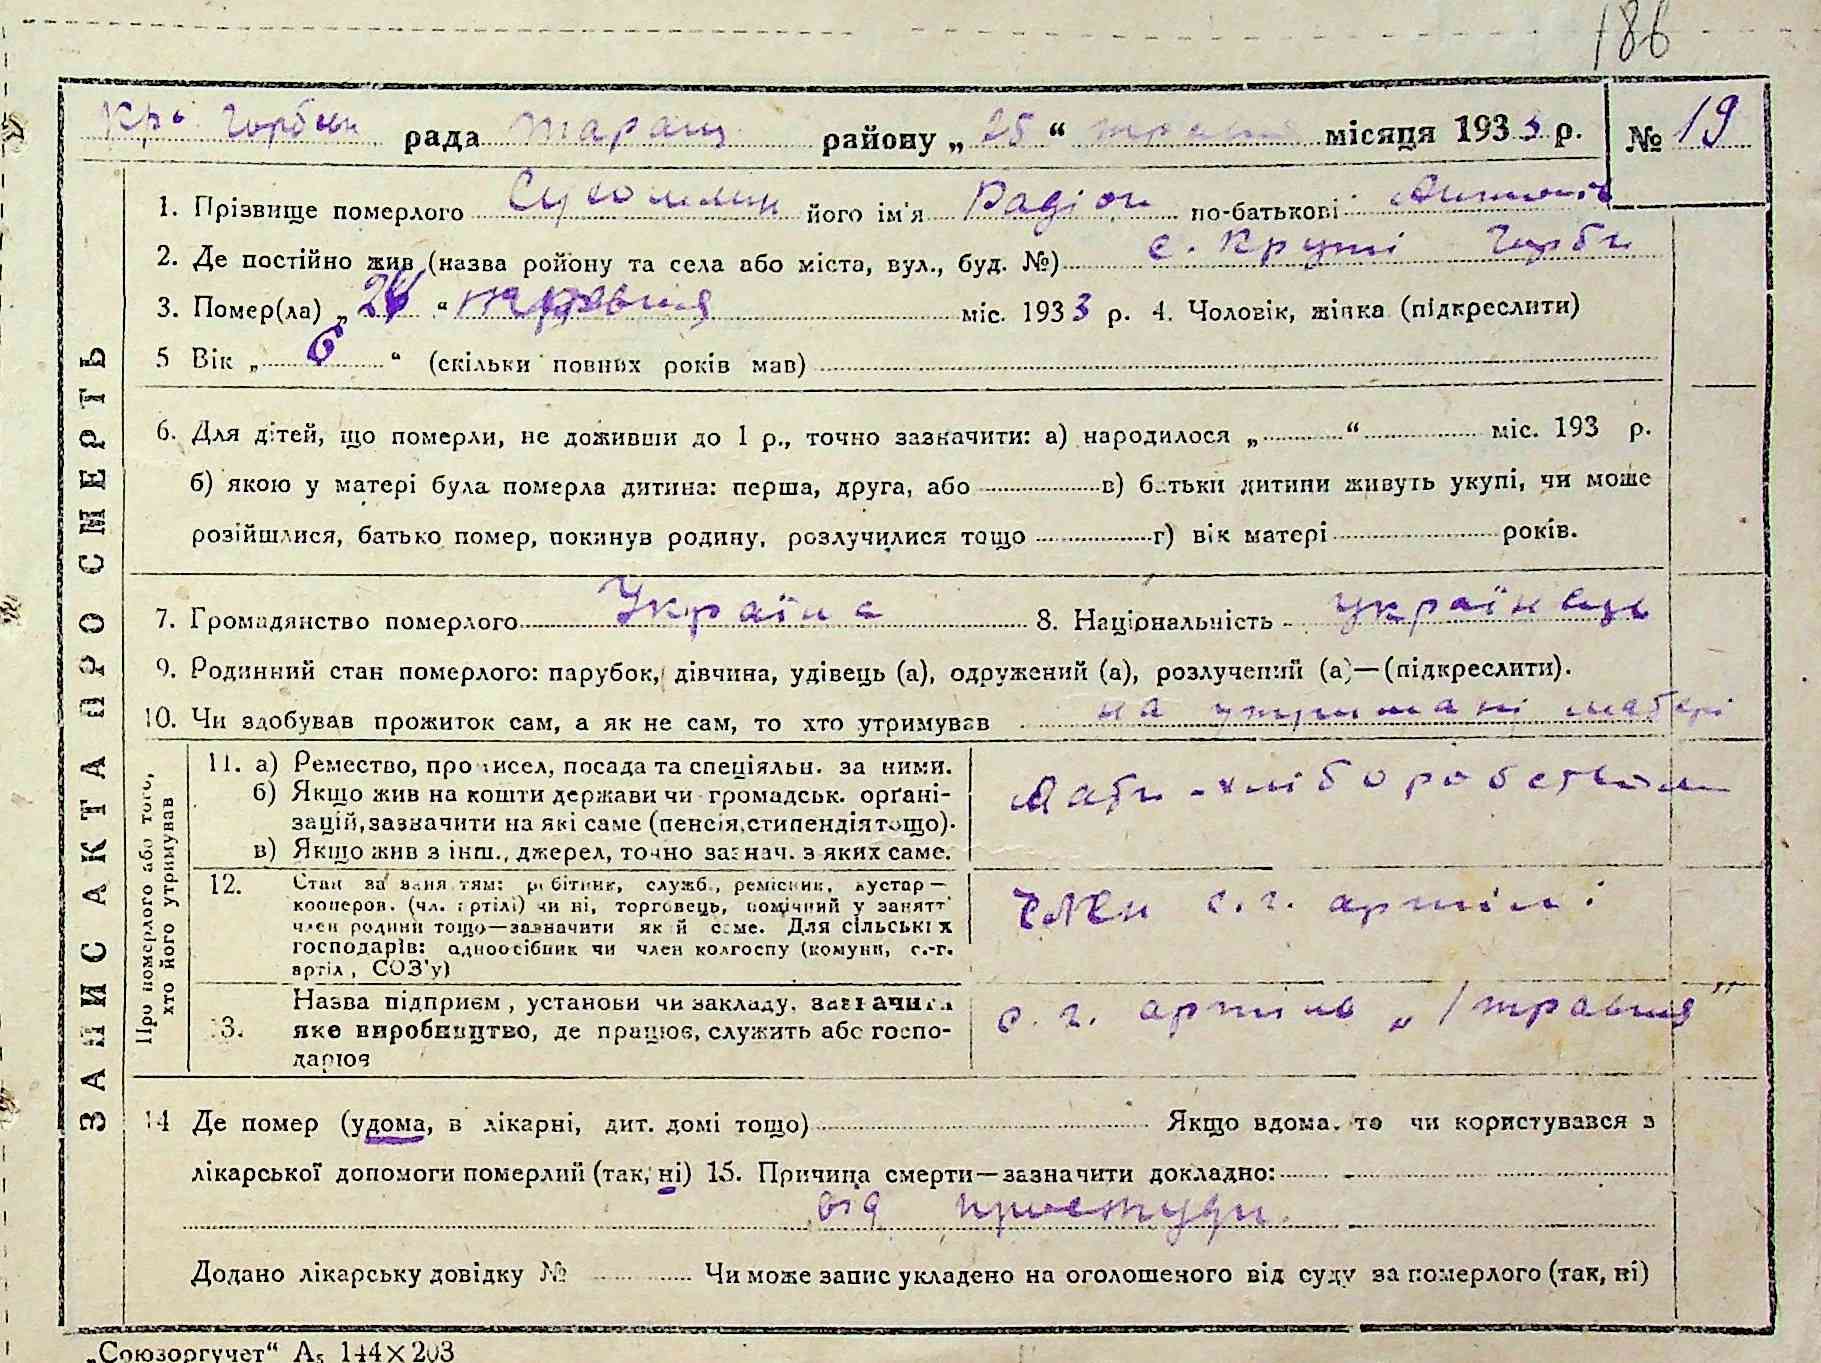 186
Кр. Горбськ рада Таращ району „25“ травня місяця 1933 р. № 19
ЗАПИС АКТА ПРО СМЕРТЬ
1. Прізвище померлого Сухомлин його ім'я Радіон по-батькові Антонів
2. Де постійно жив (назва ройону та села або міста, вул., буд. №) с. Круті Горби
3. Помер(ла) „24“ травня міс. 1933 р. 4. Чоловік, жінка (підкреслити)
5 Вік „6“ (скільки повних років мав)
6. Для дітей, що померли, не доживши до 1 р., точно зазначити: а) народилося „ “ міс. 193 р.
б) якою у матері була померла дитина: перша, друга, або в) батьки дитини живуть укупі, чи може
розійшлися, батько помер, покинув родину, розлучилися тощо г) вік матері років.
7. Громадянство померлого Україна 8. Національність українець
9. Родинний стан померлого: парубок, дівчина, удівець (а), одружений (а), розлучений (а)—(підкреслити).
10. Чи здобував прожиток сам, а як не сам, то хто утримував на утримані матері
Про померлого або того,
хто його утримував
11. а) Ремество, промисел, посада та спеціяльн. за ними.
б) Якщо жив на кошти держави чи громадськ. органі-
зацій, зазначити на які саме (пенсія, стипендія тощо).
в) Якщо жив з інш., джерел, точно зазнач. з яких саме.
Мати - хліборобством
12. Стан за заняттям: робітник, служб., ремісник, кустар—
кооперов. (чл. артілі) чи ні, торговець, помічний у занятт
член родини тощо—зазначити який саме. Для сільських
господарів: одноосібник чи член колгоспу (комуни, с.-г.
артіл, СОЗ'у)
член с. г. артілі
13. Назва підприєм, установи чи закладу, зазначити
яке виробництво, де працює, служить або госпо-
дарює
с. г. артіль „1 травня”
14 Де помер (удома, в лікарні, дит. домі тощо) Якщо вдома, то чи користувався з
лікарської допомоги померлий (так, ні) 15. Причина смерти—зазначити докладно:
від простуди.
Додано лікарську довідку № Чи може запис укладено на оголошеного від суду за померлого (так, ні)
„Союзоргучет“ А₅ 144×203